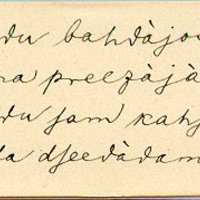 du bahdàjo
na preezàjà
du ſam kahj
la dſeedàdam